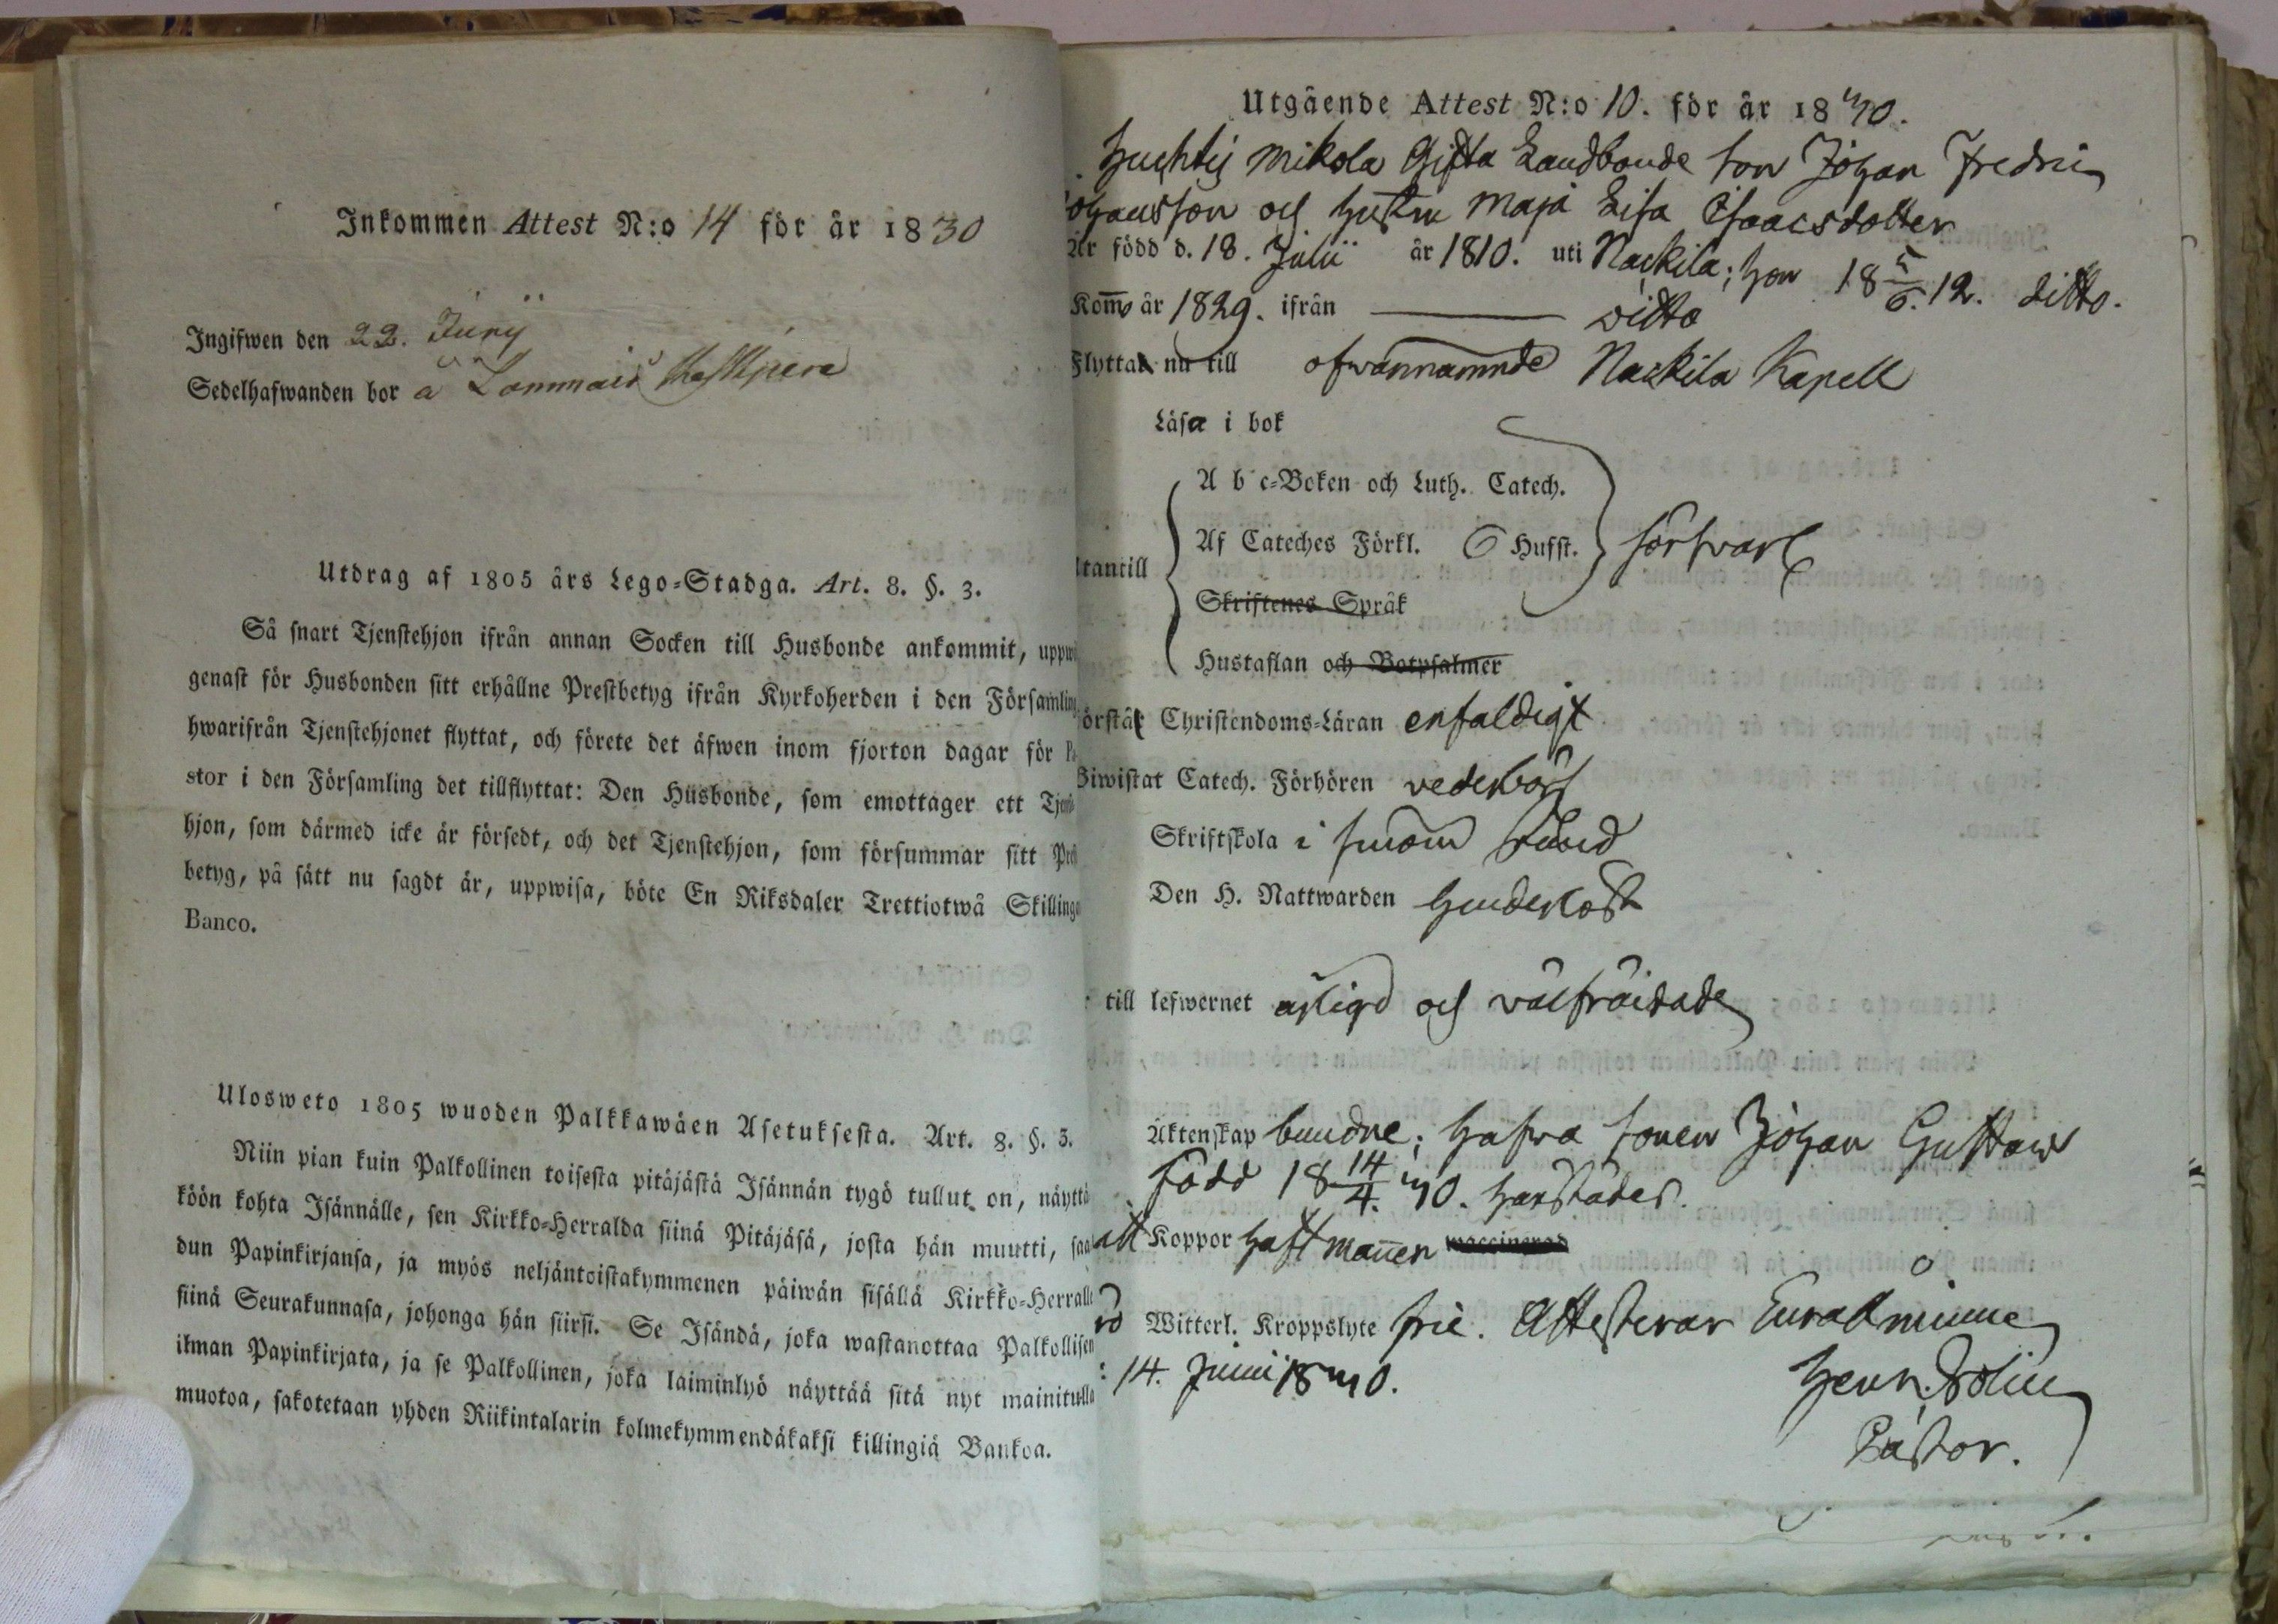 Inkommen Attest N:o 14 för år 1830
Ingifwen den 22. Junÿ
Sedelhafwanden bor å Lammais
Utdrag af 1805 års Lego-Stadga. Art. 8. §. 3.
Så snart Tjenstehjon ifrån annan Socken till Husbonde ankommit, uppwi
genast för Husbonden sitt erhållne Prestbetyg ifrån Kyrkoherden i den Församling
hwarifrån Tjenstehjonet flyttat, och förete det äfwen inom fjorton dagar för Pa
stor i den Församling det tillflyttat: Den Husbonde, som emottager ett Tjenste
hjon, som därmed icke är försedt, och det Tjenstehjon, som försummar sitt Prest
betyg, på sätt nu sagdt är, uppwisa, böte En Riksdaler Trettiotwå Skillingar
Banco.
Ulosweto 1805 wuoden Palkkawäen Asetuksesta. Art. 8. §. 3.
Niin pian kuin Palkollinen toisesta pitäjästä Isännän tygö tullut on, näyttä
köön kohta Isännälle, sen Kirkko-Herralda siinä Pitäjäsä, josta hän muutti, saa
dun Papinkirjansa, ja myös neljäntoistakymmenen päiwän sisällä Kirkko-Herralle
siinä Seurakunnasa, johonga hän siirsi. Se Isändä, joka wastanottaa Palkollisen
ilman Papinkirjata, ja se Palkollinen, joka laiminlyö näyttää sitä nyt mainitulla
muotoa, sakotetaan yhden Riikintalarin kolmekymmendäkaksi killingiä Bankoa.
Utgående Attest N:o 10. för år 1840.
Huhtis Mikola Gifta Landbonde son Johan Fredric
Johansson och hustru Maja Lisa Isaacsdotter
Är född d. 18. Julii år 1810. uti Nackila; hon 18 5/6. 12. ditto.
Komo år 1829. ifrån ditto
Flytta nu till ofwannämnde Nackila Kapell
Läsa i bok
A b c-Boken och Luth. Catech.
Af Cateches Förkl. 6 Hufst. försvarl.
Utantill
Skriftenes Språk
Hustaflan och Botpsalmer
örstår Christendoms-Läran enfaldigt
Biwistat Catech. Förhören vederbörl
Skriftskola i sinom stund
Den H. Nattwarden hinderlöst
till lefwernet ärlige och välfräidade
Äktenskap bundne; hafwa sonen Johan Gustaw
född 18 14/4. 40. härstädes.
att Koppor haft mannen vaccinerad
Witterl. Kroppslyte frie. Attesterar Euraåminne
14. Junii 1840. Henr. Bolin
Pastor.